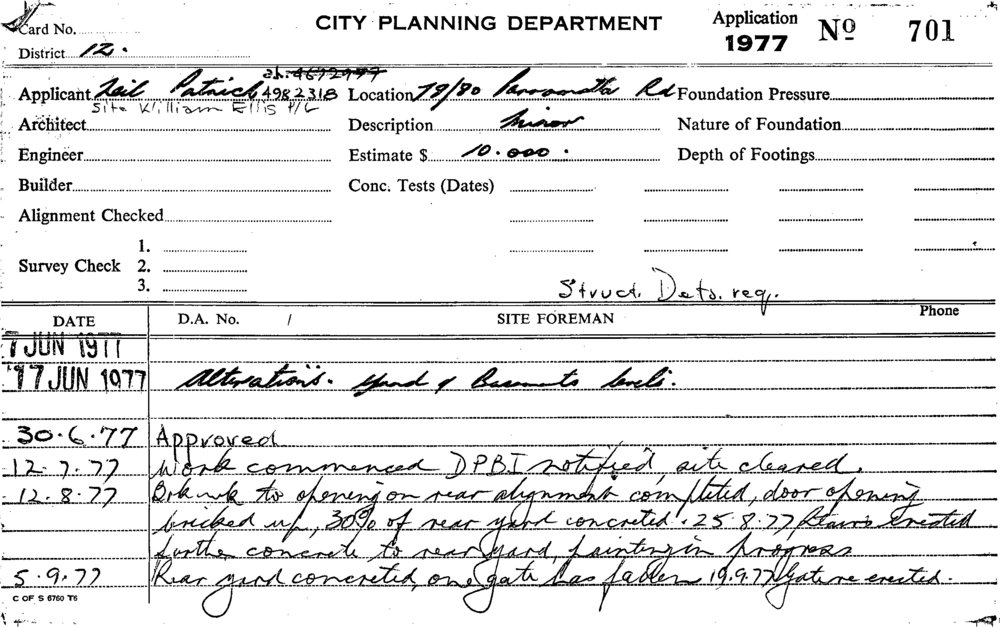 Card No.
District 12.
CITY PLANNING DEPARTMENT
Application 1977 Nº 701
ah. 4672977
Applicant Neil Patrick 4982318 Location 78/80 Parramatta Rd Foundation Pressure
Site William Ellis P/L
Architect Description Minor Nature of Foundation
Engineer Estimate $ 10.000. Depth of Footings
Builder Conc. Tests (Dates)
Alignment Checked
Survey Check 1.
2.
3.
Struct. Dets. req.
DATE D.A. No. / SITE FOREMAN Phone
7 JUN 1977
17 JUN 1977 Alterations. Yard & Basements levels.
30.6.77 Approved
12.7.77 Work commenced DPBI notified, site cleared.
12.8.77 Brkwk to opening on rear alignment completed, door opening
bricked up, 30% of rear yard concreted. 25.8.77 Stairs erected
further concrete to rear yard, painting in progress
5.9.77 Rear yard concreted, one gate has fallen 19.9.77 Gate re erected.
C OF S 6760 T6